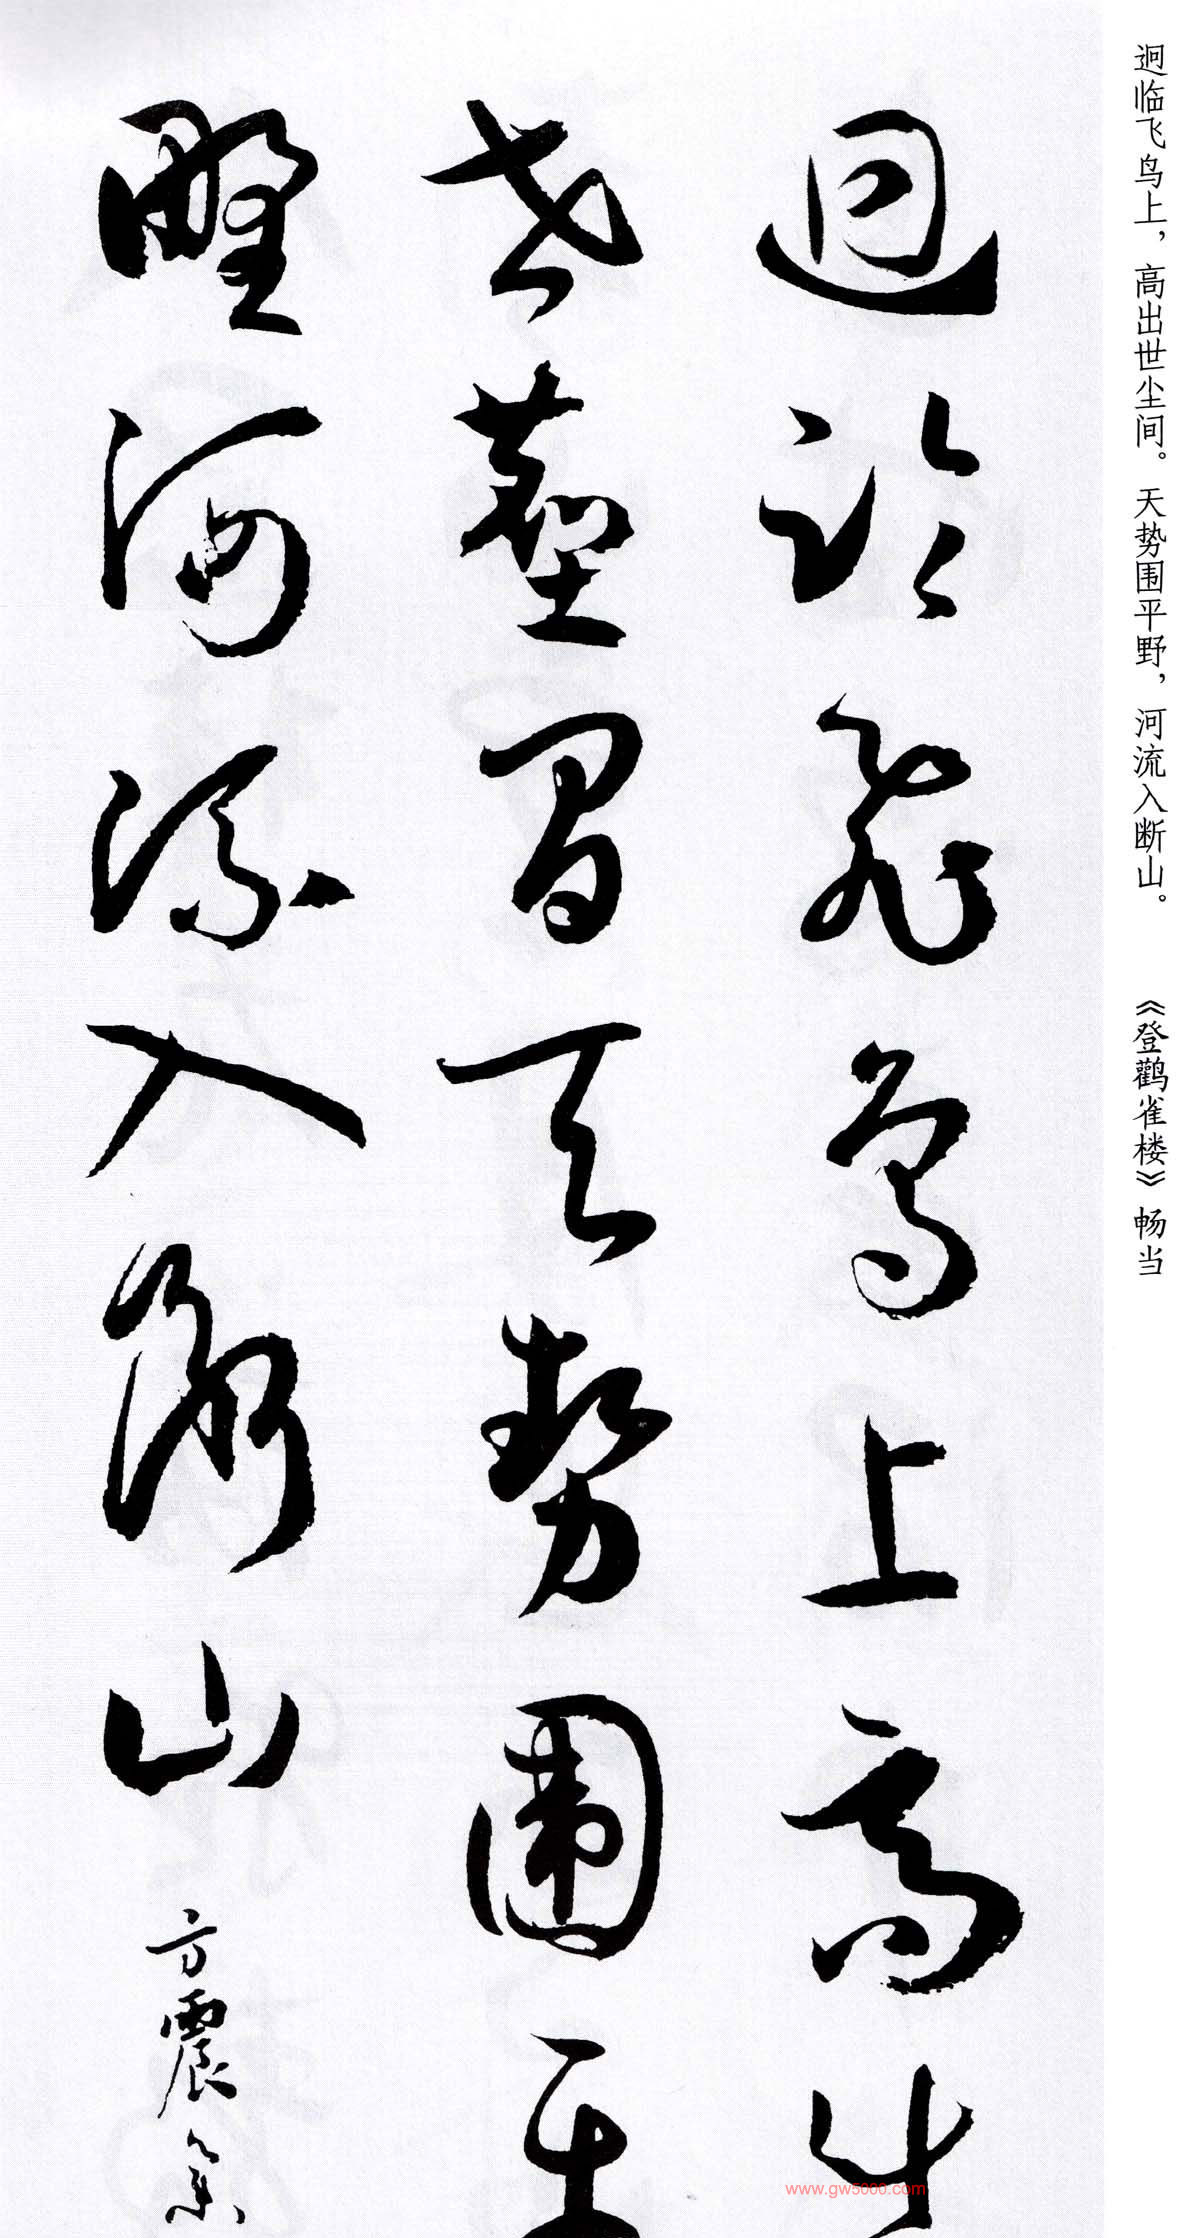 迥临飞鸟上，高出世尘间。天势围平野，河流入断山。 《登鹳雀楼》 畅当
迥臨飛鳥上高出
世塵間天勢圍平
野河流入斷山
方震
www.gw5000.com